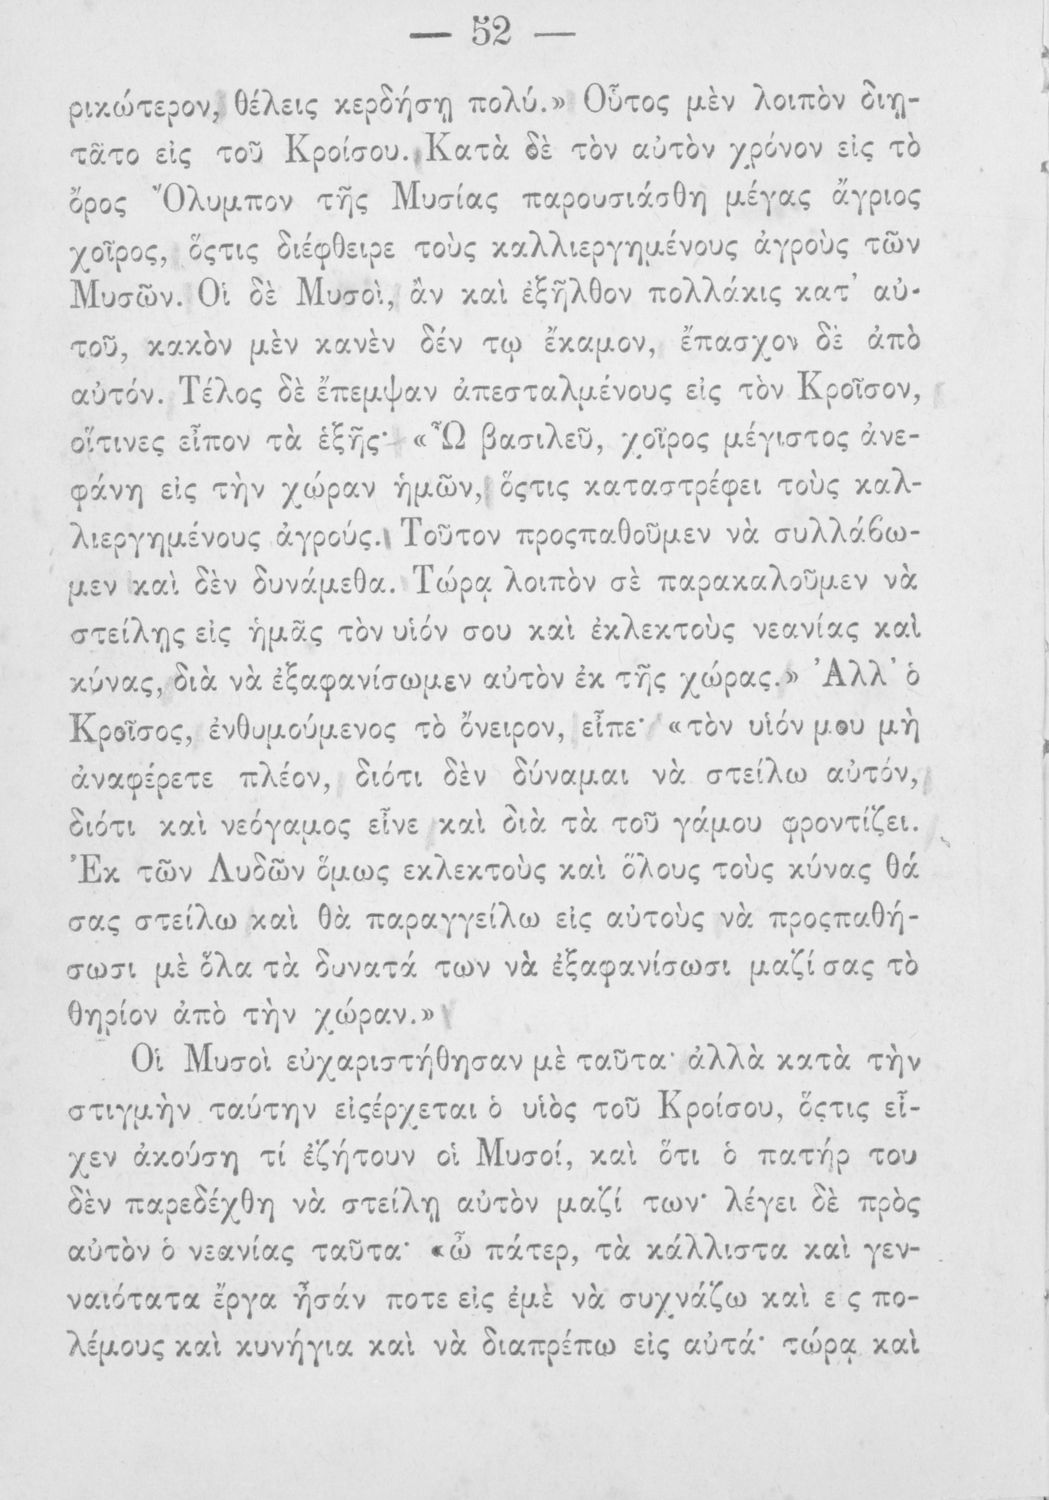 — 52 —
ρικώτερον, θέλεις κερδήσῃ πολύ.» Οὗτος μὲν λοιπὸν διῃ-
τᾶτο εἰς τοῦ Κροίσου. Κατὰ δὲ τὸν αὐτὸν χρόνον εἰς τὸ
ὄρος Ὄλυμπον τῆς Μυσίας παρουσιάσθη μέγας ἄγριος
χοῖρος, ὅςτις διέφθειρε τοὺς καλλιεργημένους ἀγροὺς τῶν
Μυσῶν. Οἱ δὲ Μυσοὶ, ἂν καὶ ἐξῆλθον πολλάκις κατ' αὐ-
τοῦ, κακὸν μὲν κανὲν δέν τῳ ἔκαμον, ἔπασχον δὲ ἀπὸ
αὐτόν. Τέλος δὲ ἔπεμψαν ἀπεσταλμένους εἰς τὸν Κροῖσον,
οἵτινες εἶπον τὰ ἑξῆς· «Ὦ βασιλεῦ, χοῖρος μέγιστος ἀνε-
φάνη εἰς τὴν χώραν ἡμῶν, ὅςτις καταστρέφει τοὺς καλ-
λιεργημένους ἀγρούς. Τοῦτον προςπαθοῦμεν νὰ συλλάβω-
μεν καὶ δὲν δυνάμεθα. Τώρᾳ λοιπὸν σὲ παρακαλοῦμεν νὰ
στείλῃς εἰς ἡμᾶς τὸν υἱόν σου καὶ ἐκλεκτοὺς νεανίας καὶ
κύνας, διὰ νὰ ἐξαφανίσωμεν αὐτὸν ἐκ τῆς χώρας.» Ἀλλ' ὁ
Κροῖσος, ἐνθυμούμενος τὸ ὄνειρον, εἶπε· «τὸν υἱόν μου μὴ
ἀναφέρετε πλέον, διότι δὲν δύναμαι νὰ στείλω αὐτόν,
διότι καὶ νεόγαμος εἶνε καὶ διὰ τὰ τοῦ γάμου φροντίζει.
Ἐκ τῶν Λυδῶν ὅμως εκλεκτοὺς καὶ ὅλους τοὺς κύνας θά
σας στείλω καὶ θὰ παραγγείλω εἰς αὐτοὺς νὰ προςπαθή-
σωσι μὲ ὅλα τὰ δυνατά των νὰ ἐξαφανίσωσι μαζί σας τὸ
θηρίον ἀπὸ τὴν χώραν.»
Οἱ Μυσοὶ εὐχαριστήθησαν μὲ ταῦτα· ἀλλὰ κατὰ τὴν
στιγμὴν ταύτην εἰςέρχεται ὁ υἱὸς τοῦ Κροίσου, ὅςτις εἶ-
χεν ἀκούσῃ τί ἐζήτουν οἱ Μυσοί, καὶ ὅτι ὁ πατήρ του
δὲν παρεδέχθη νὰ στείλῃ αὐτὸν μαζί των· λέγει δὲ πρὸς
αὐτὸν ὁ νεανίας ταῦτα· «ὦ πάτερ, τὰ κάλλιστα καὶ γεν-
ναιότατα ἔργα ἦσάν ποτε εἰς ἐμὲ νὰ συχνάζω καὶ ε ς πο-
λέμους καὶ κυνήγια καὶ νὰ διαπρέπω εἰς αὐτά· τώρᾳ καὶ